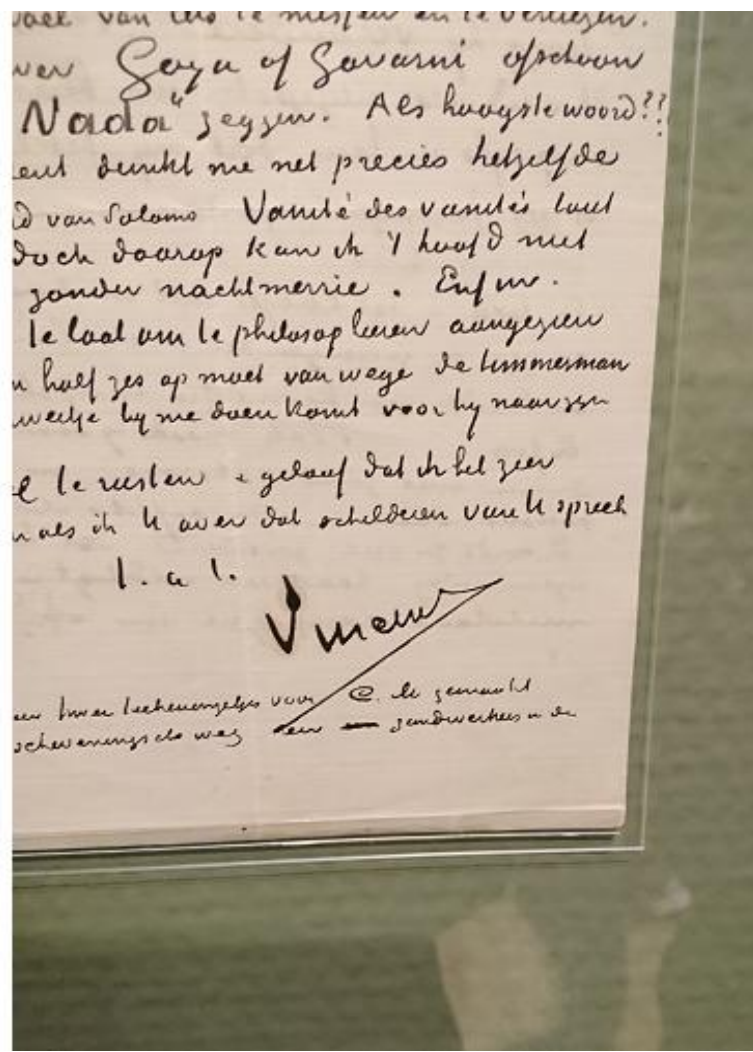 van iets te missen en te verliezen.
over Goya of Gavarni ofschoon
Nada" zeggen. Als hoogste woord??
dunkt me net precies hetzelfde
van Salomo Vanité des vanités tout
doch daarop kan ik 't hoofd niet
zonder nachtmerrie. Enfin.
te laat om te philosopheeren aangezien
half zes op moet van wege de timmerman
by me doen komt voor hy naar zyn
te rusten & geloof dat ik het zeer
als ik U over dat schilderen van U spreek
t. à t.
Vincent
twee teekeningetjes voor C.M. gemaakt
Schevenings de weg een zandwerkers in de